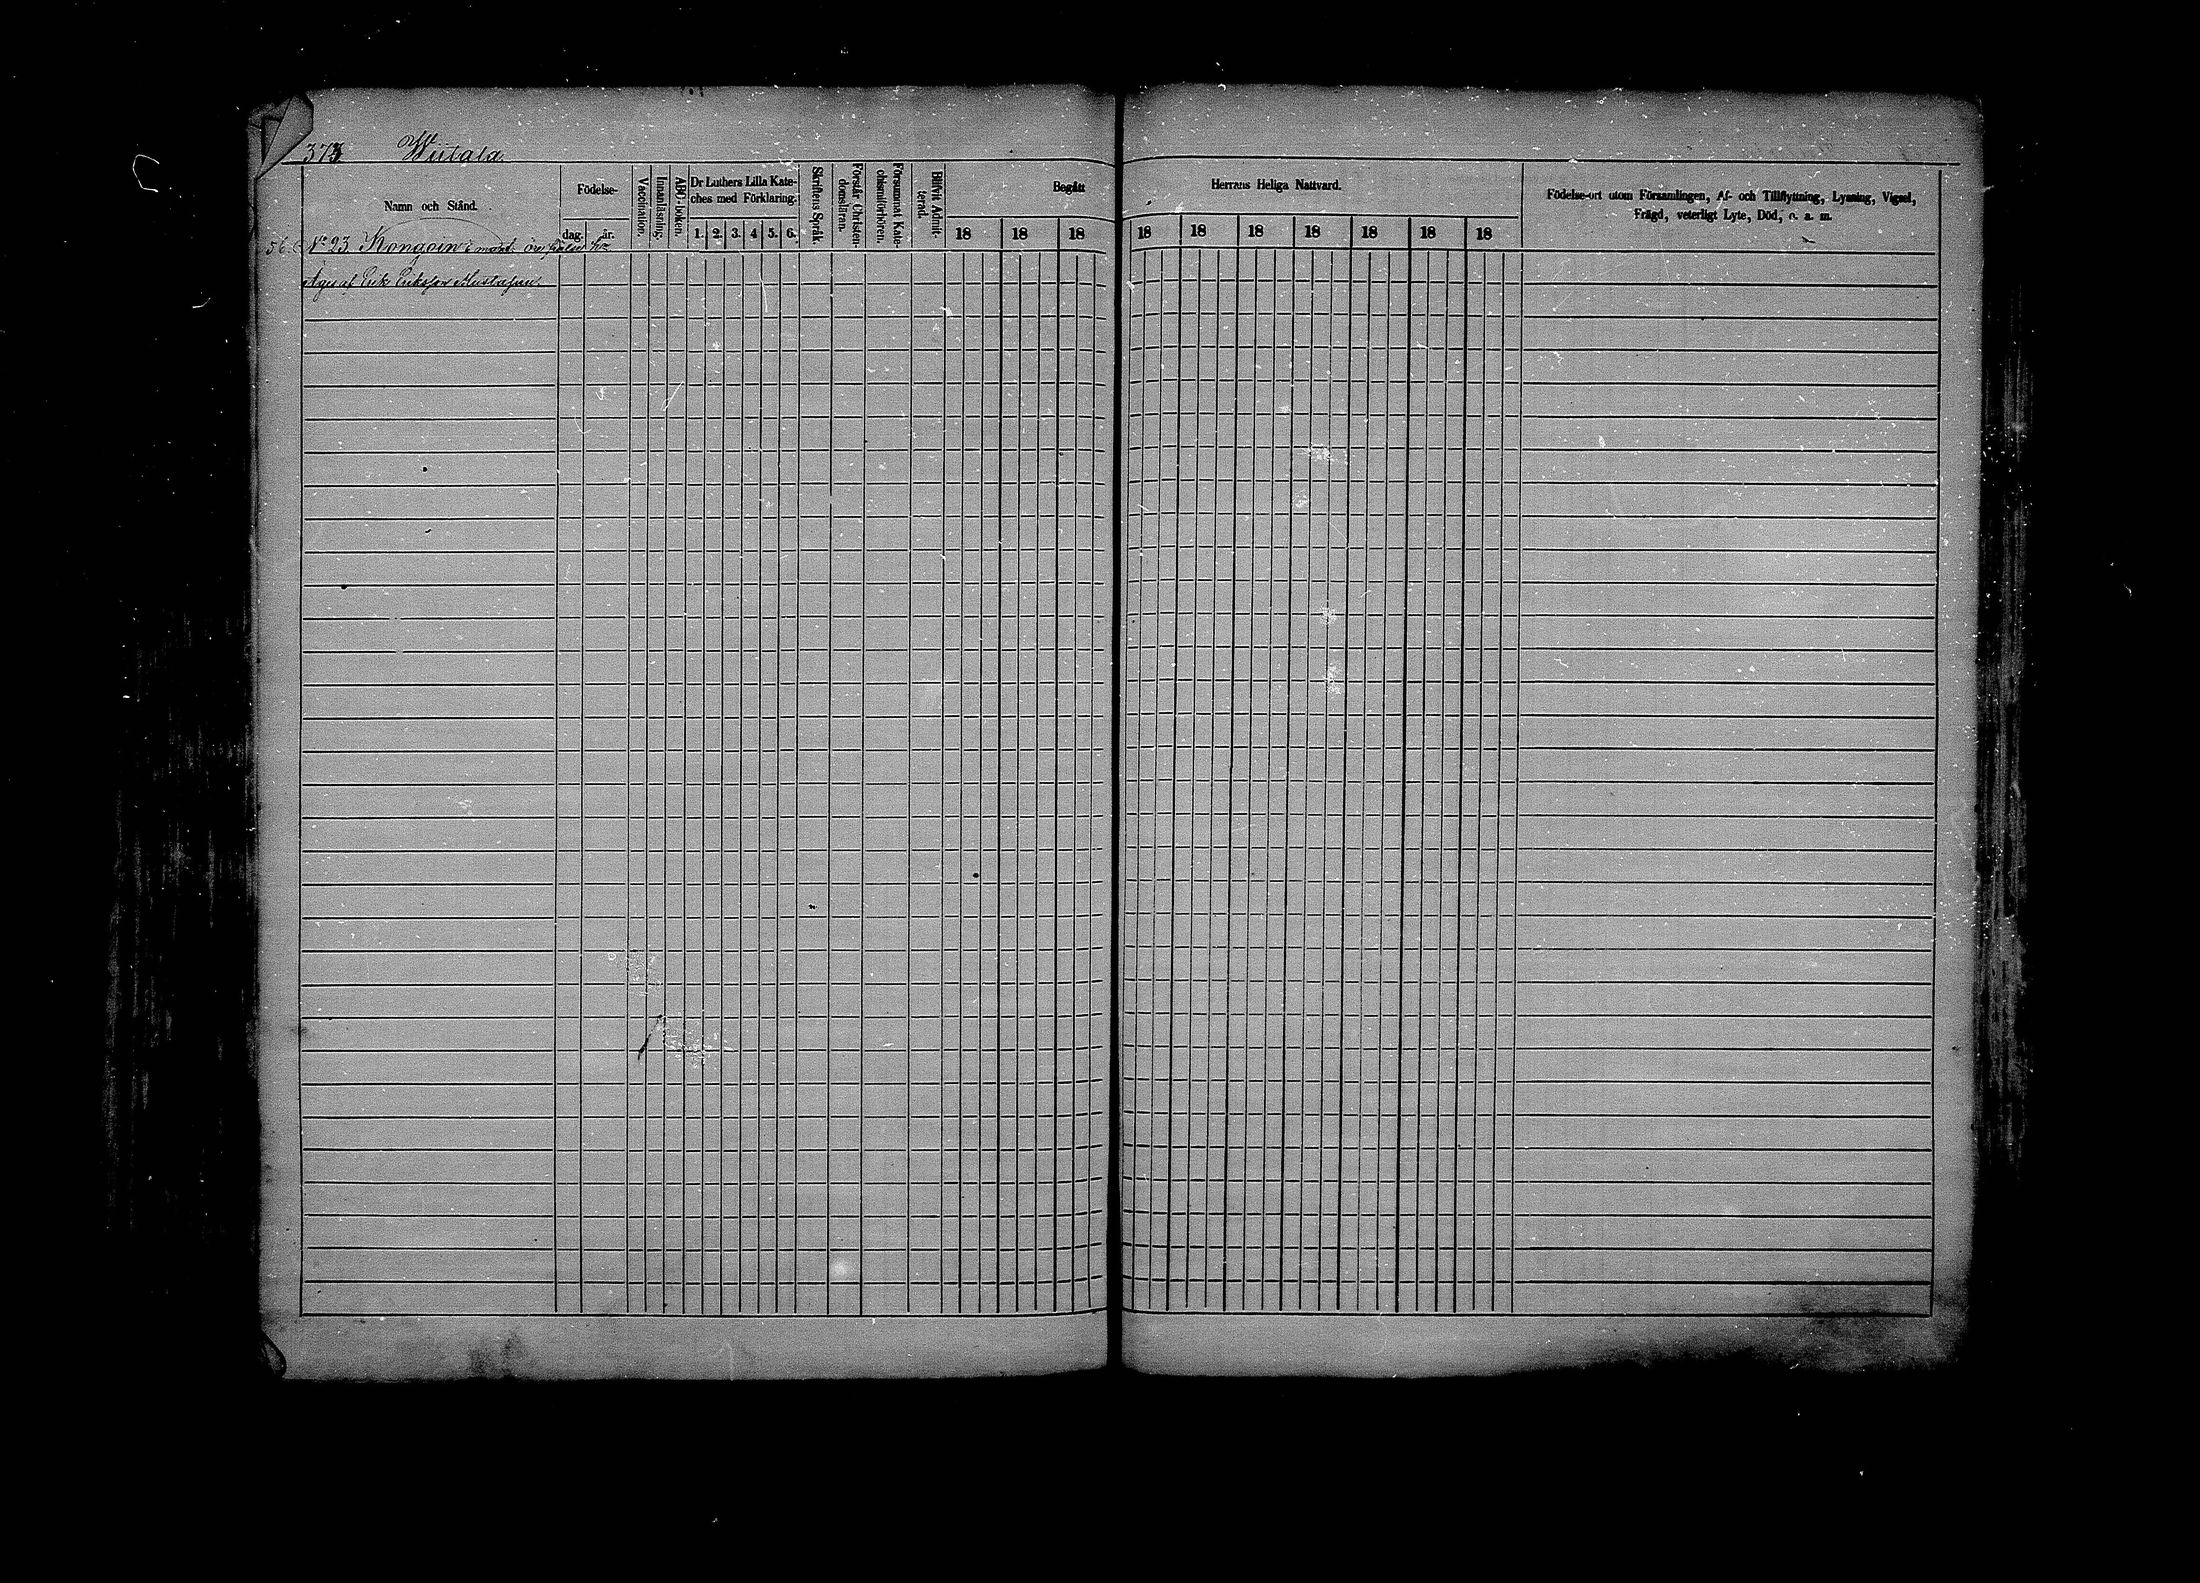 373 Wiitala.
Namn och Stånd.
Födelse-
dag. år.
Vaccination.
Innanläsning.
ABC-boken.
Dr Luthers Lilla Kate-
ches med Förklaring.
1. 2. 3. 4 5. 6.
Skriftens Språk.
Förstår Christen-
domsläran.
Försummat Kate-
chismiförhören.
Blifvit Admit-
terad.
Begått
18 18 18
Herrans Heliga Nattvard.
18 18 18 18 18 18 18
Födelse-ort utom Församlingen, Af- och Tillflyttning, Lysning, Vigsel,
Frägd, veterligt Lyte, Död, o. a. m.
56. No 23 Kongoin
Äges af Erik Eriksson